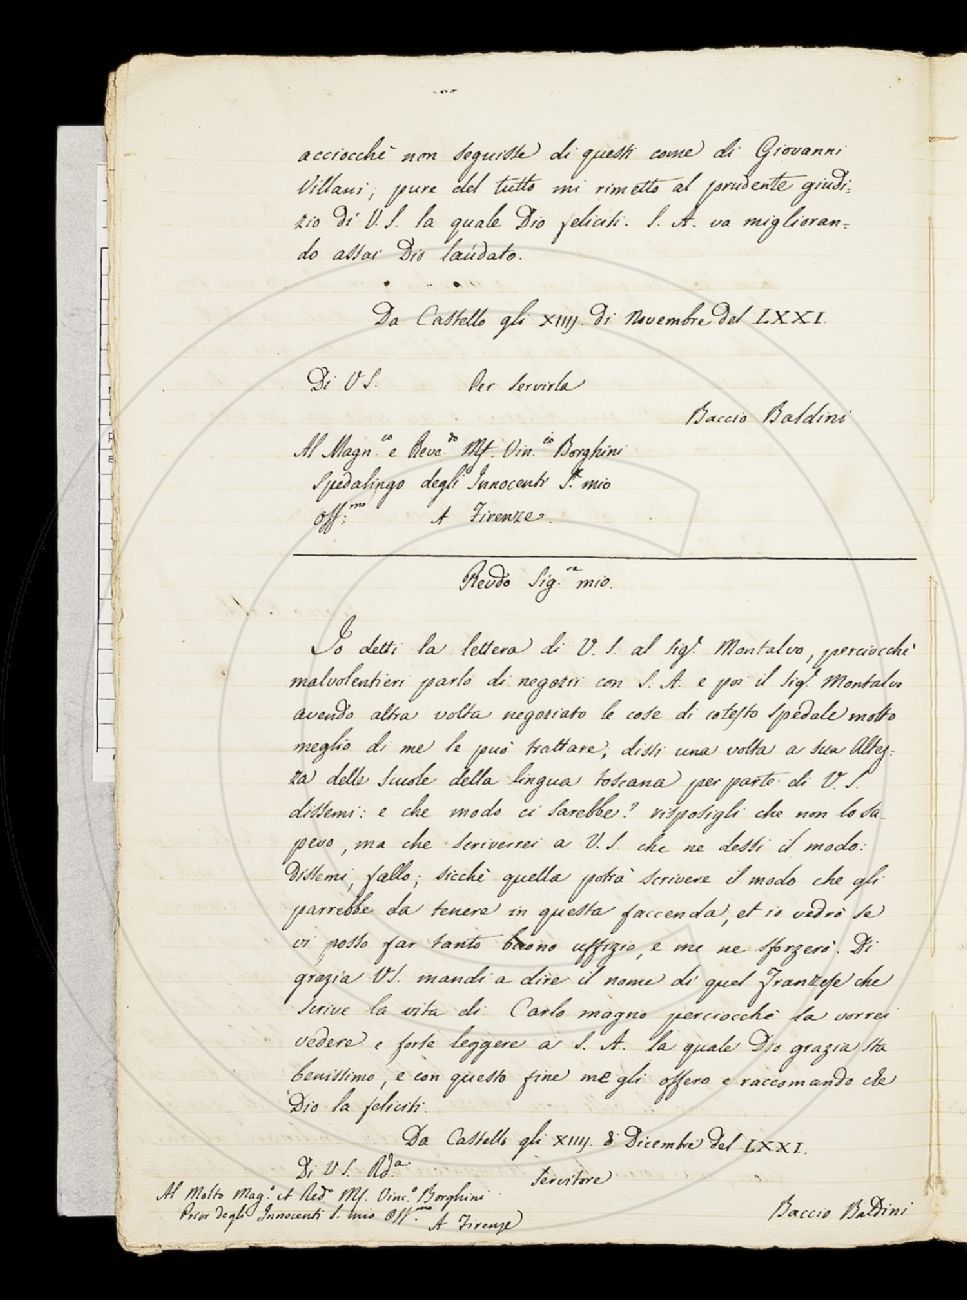 acciocchè non seguisse di questi come di Giovanni
Villani; pure del tutto mi rimetto al prudente giudi:
zio di V. S. la quale Dio feliciti. S. A. va miglioran=
do assai Dio laudato.
Da Castello gli XIIIJ. di Novembre del LXXI.
Di V S. Per Servirla
Baccio Baldini
Al Magn.co e Reve.do Mſ. Vin.co Borghini
Spedalingo degli Innocenti S.r mio
Oss:mo A Firenze.
Revdo Sig.re mio.
Io detti la lettera di V. S. al Sig.r Montalvo, perciocchè
malvolentieri parlo di negozii con S. A. e poi il Sig.r Montalvo
avendo altra volta negoziato le cose di cotesto Spedale molto
meglio di me le può trattare; dissi una volta a sua Altez:
za delle Scuole della lingua toscana per parte di V. S.
dissemi: e che modo ci sarebbe? risposigli che non lo sa
pevo, ma che scriverrei a V. S. che ne dessi il modo:
Dissemi, fallo; sicchè quella potrà scrivere il modo che gli
parrebbe da tenere in questa faccenda, et io vedrò se
vi posso far tanto buono uffizio, e me ne sforzerò. Di
grazia VS. mandi a dire il nome di quel Franzese che
scrive la vita di Carlo magno perciocchè la vorrei
vedere e forse leggere a S. A. la quale Dio grazia sta
benissimo, e con questo fine me gli offero e raccomando che
Dio la feliciti.
Da Castello gli XIIIJ. di Dicembre del LXXI.
Di V S. Rd.a Servitore
Al Molto Mag.o et Red.o Mſ. Vinc.o Borghini
Prior degli Innocenti S. mio Oss.mo A Firenze
Baccio Baldini